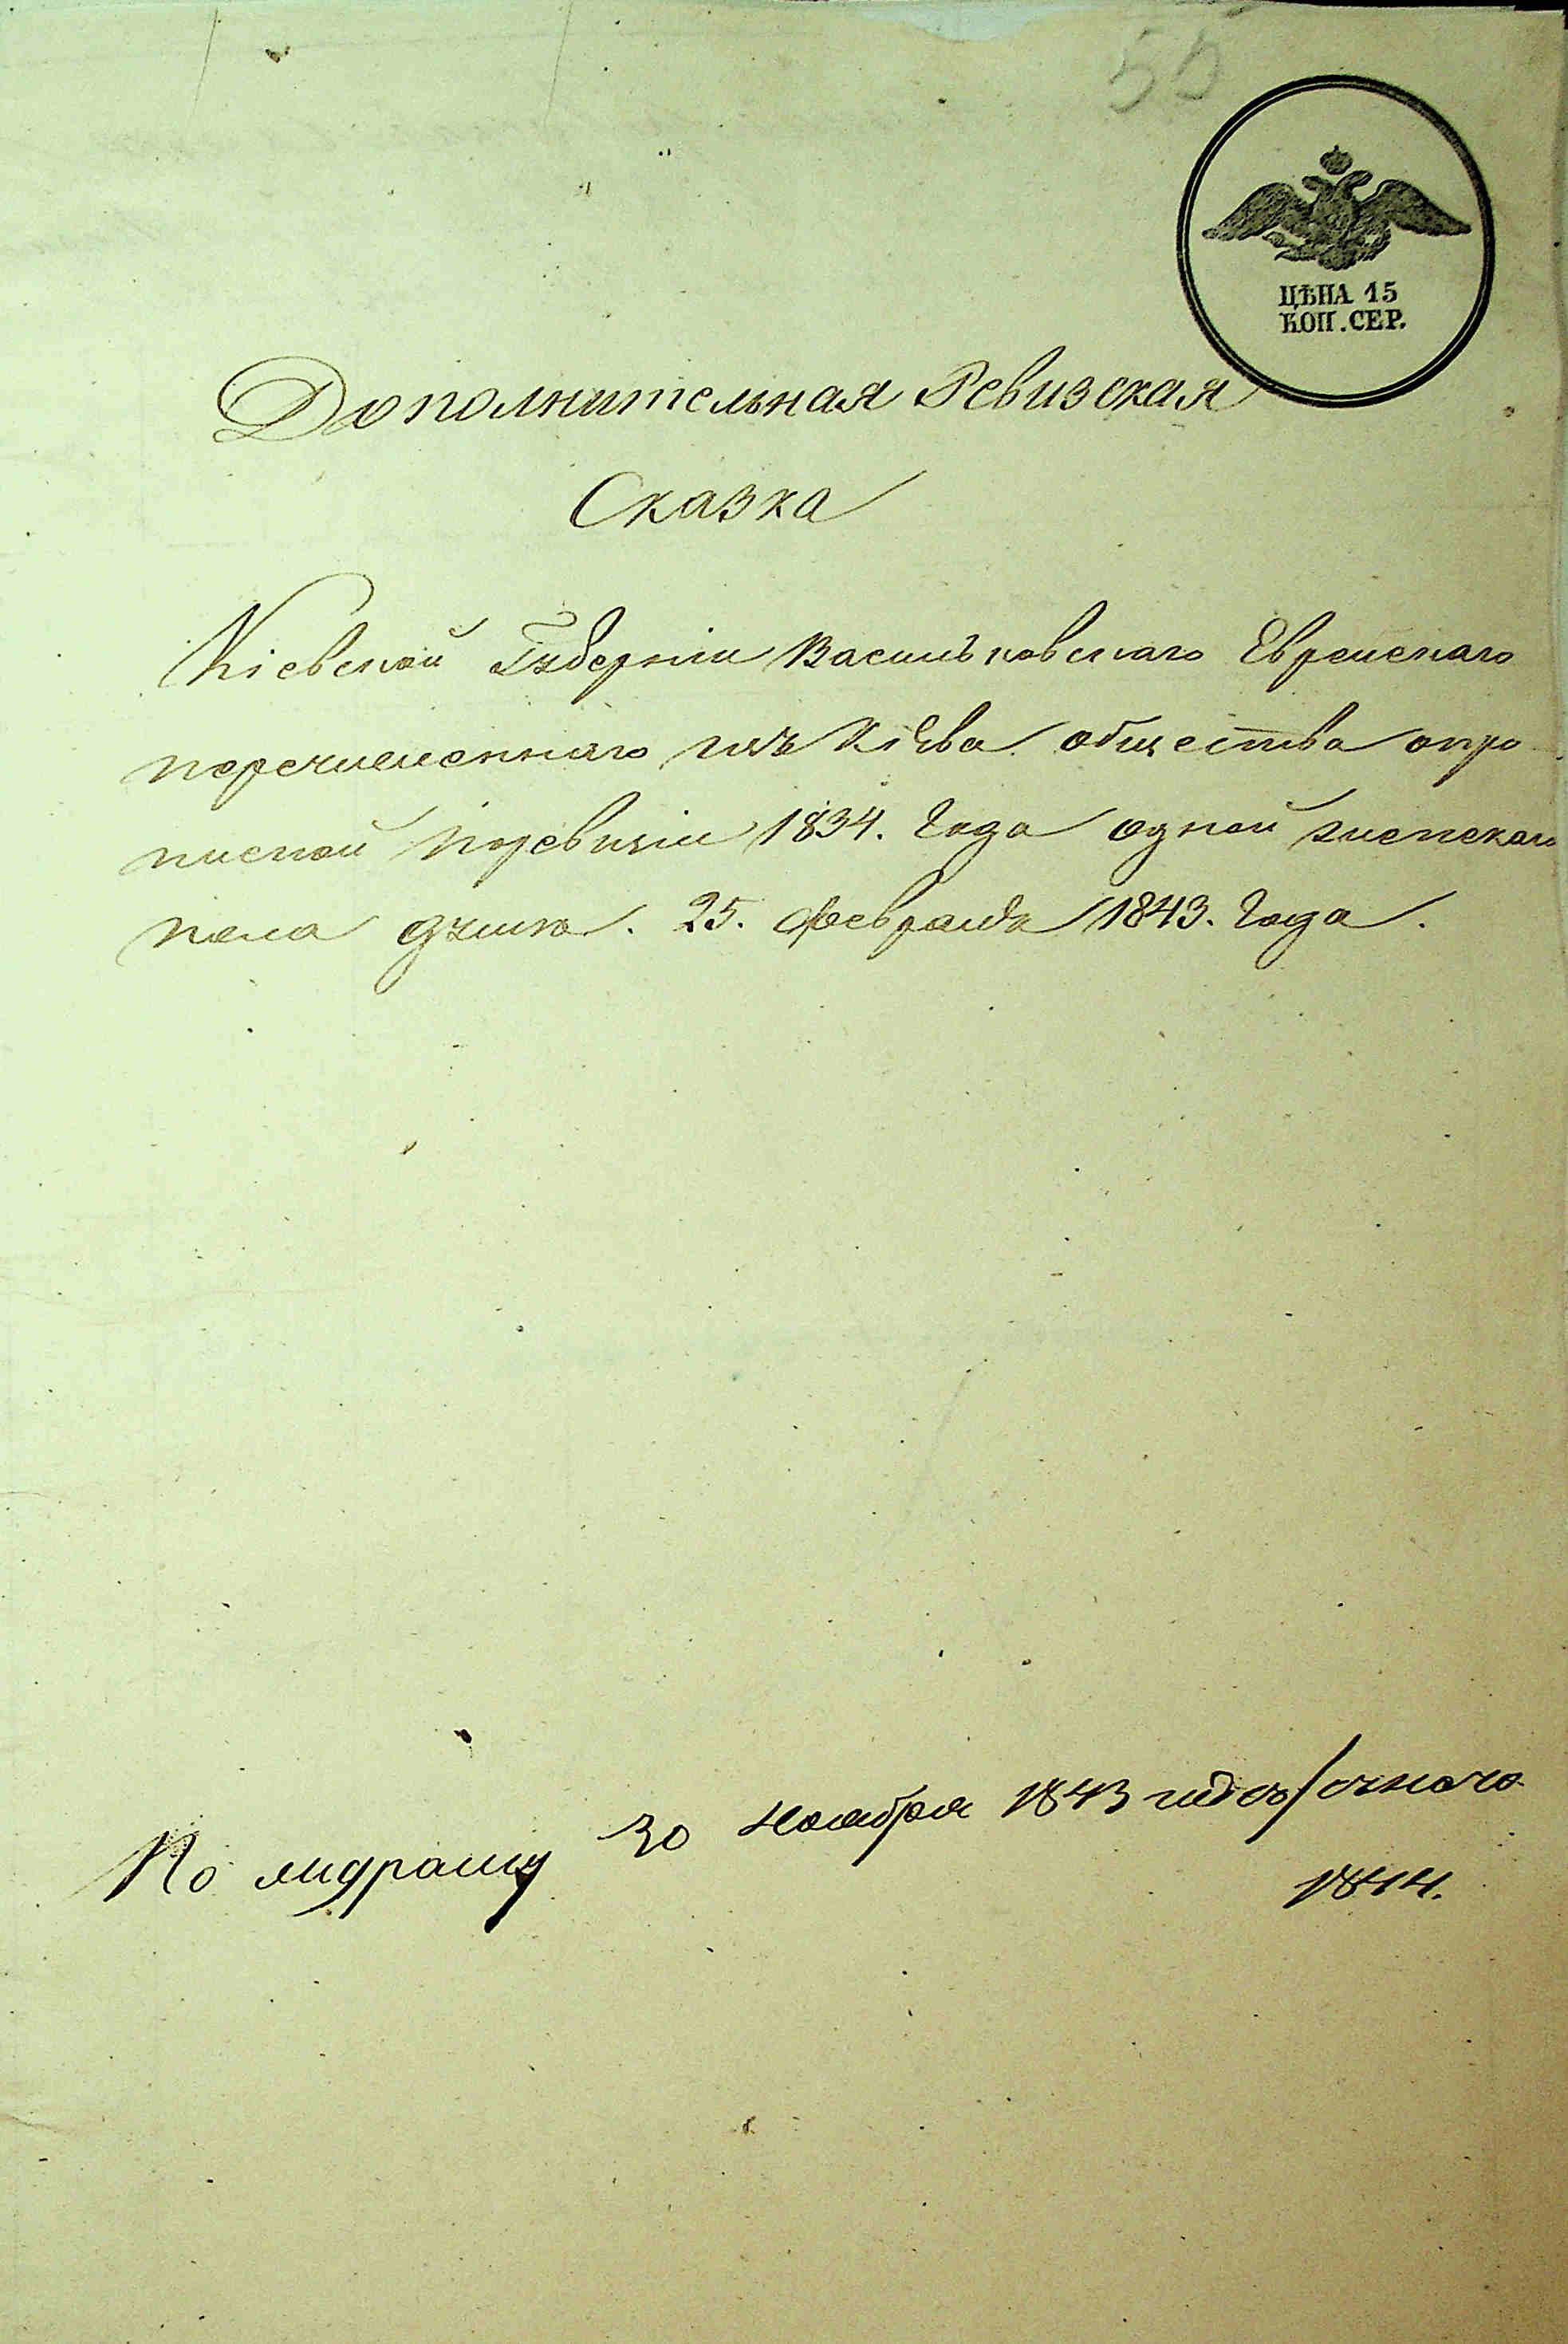 55
ЦѢНА 15
КОП. СЕР.
Дополнительная Ревизская
Сказка
Кіевской Губерніи Васильковскаго Еврейскаго
перечисленнаго изъ Кіева общества опро
писной поревизіи 1834. Года одной мужескаго
пола душѣ. 25. февраля 1843. Года.
По
30 Ноября 1843
1844.